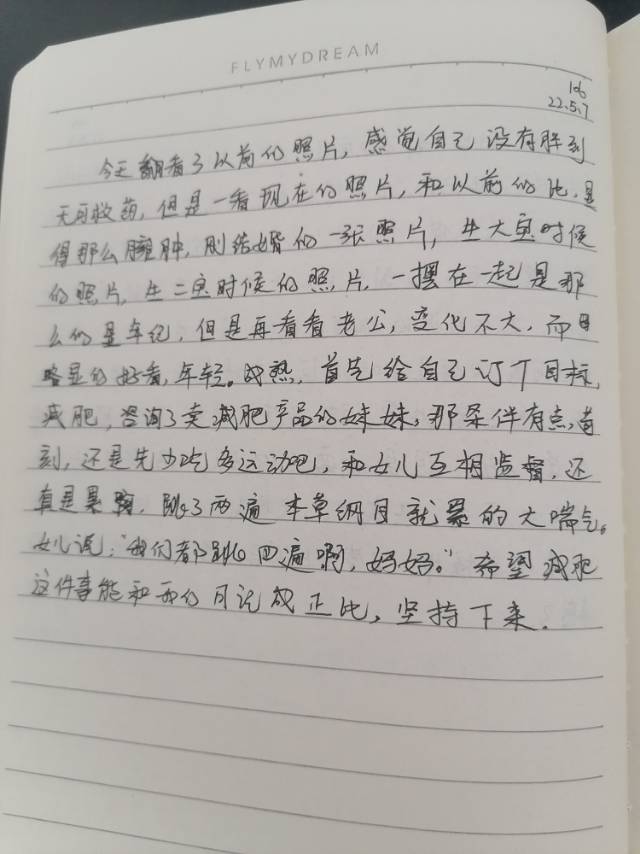 FLYMYDREAM
106
22.5.7
今天翻看了以前的照片，感觉自己没有胖到
无可救药，但是一看现在的照片，和以前的比，显
得那么臃肿，刚结婚的一张照片，生大宝时候
的照片，生二宝时候的照片，一摆在一起是那
么的显年纪，但是再看看老公，变化不大，而且
略显的好看，年轻。成熟，首先给自己订个目标，
减肥，咨询了卖减肥产品的妹妹，那条件有点苛
刻，还是先少吃多运动吧，和女儿互相监督，还
真是果，跳了两遍本草纲目就累的大喘气。
女儿说："我们都跳四遍啊，妈妈。"希望减肥
这件事能和我的日记成正比，坚持下来．